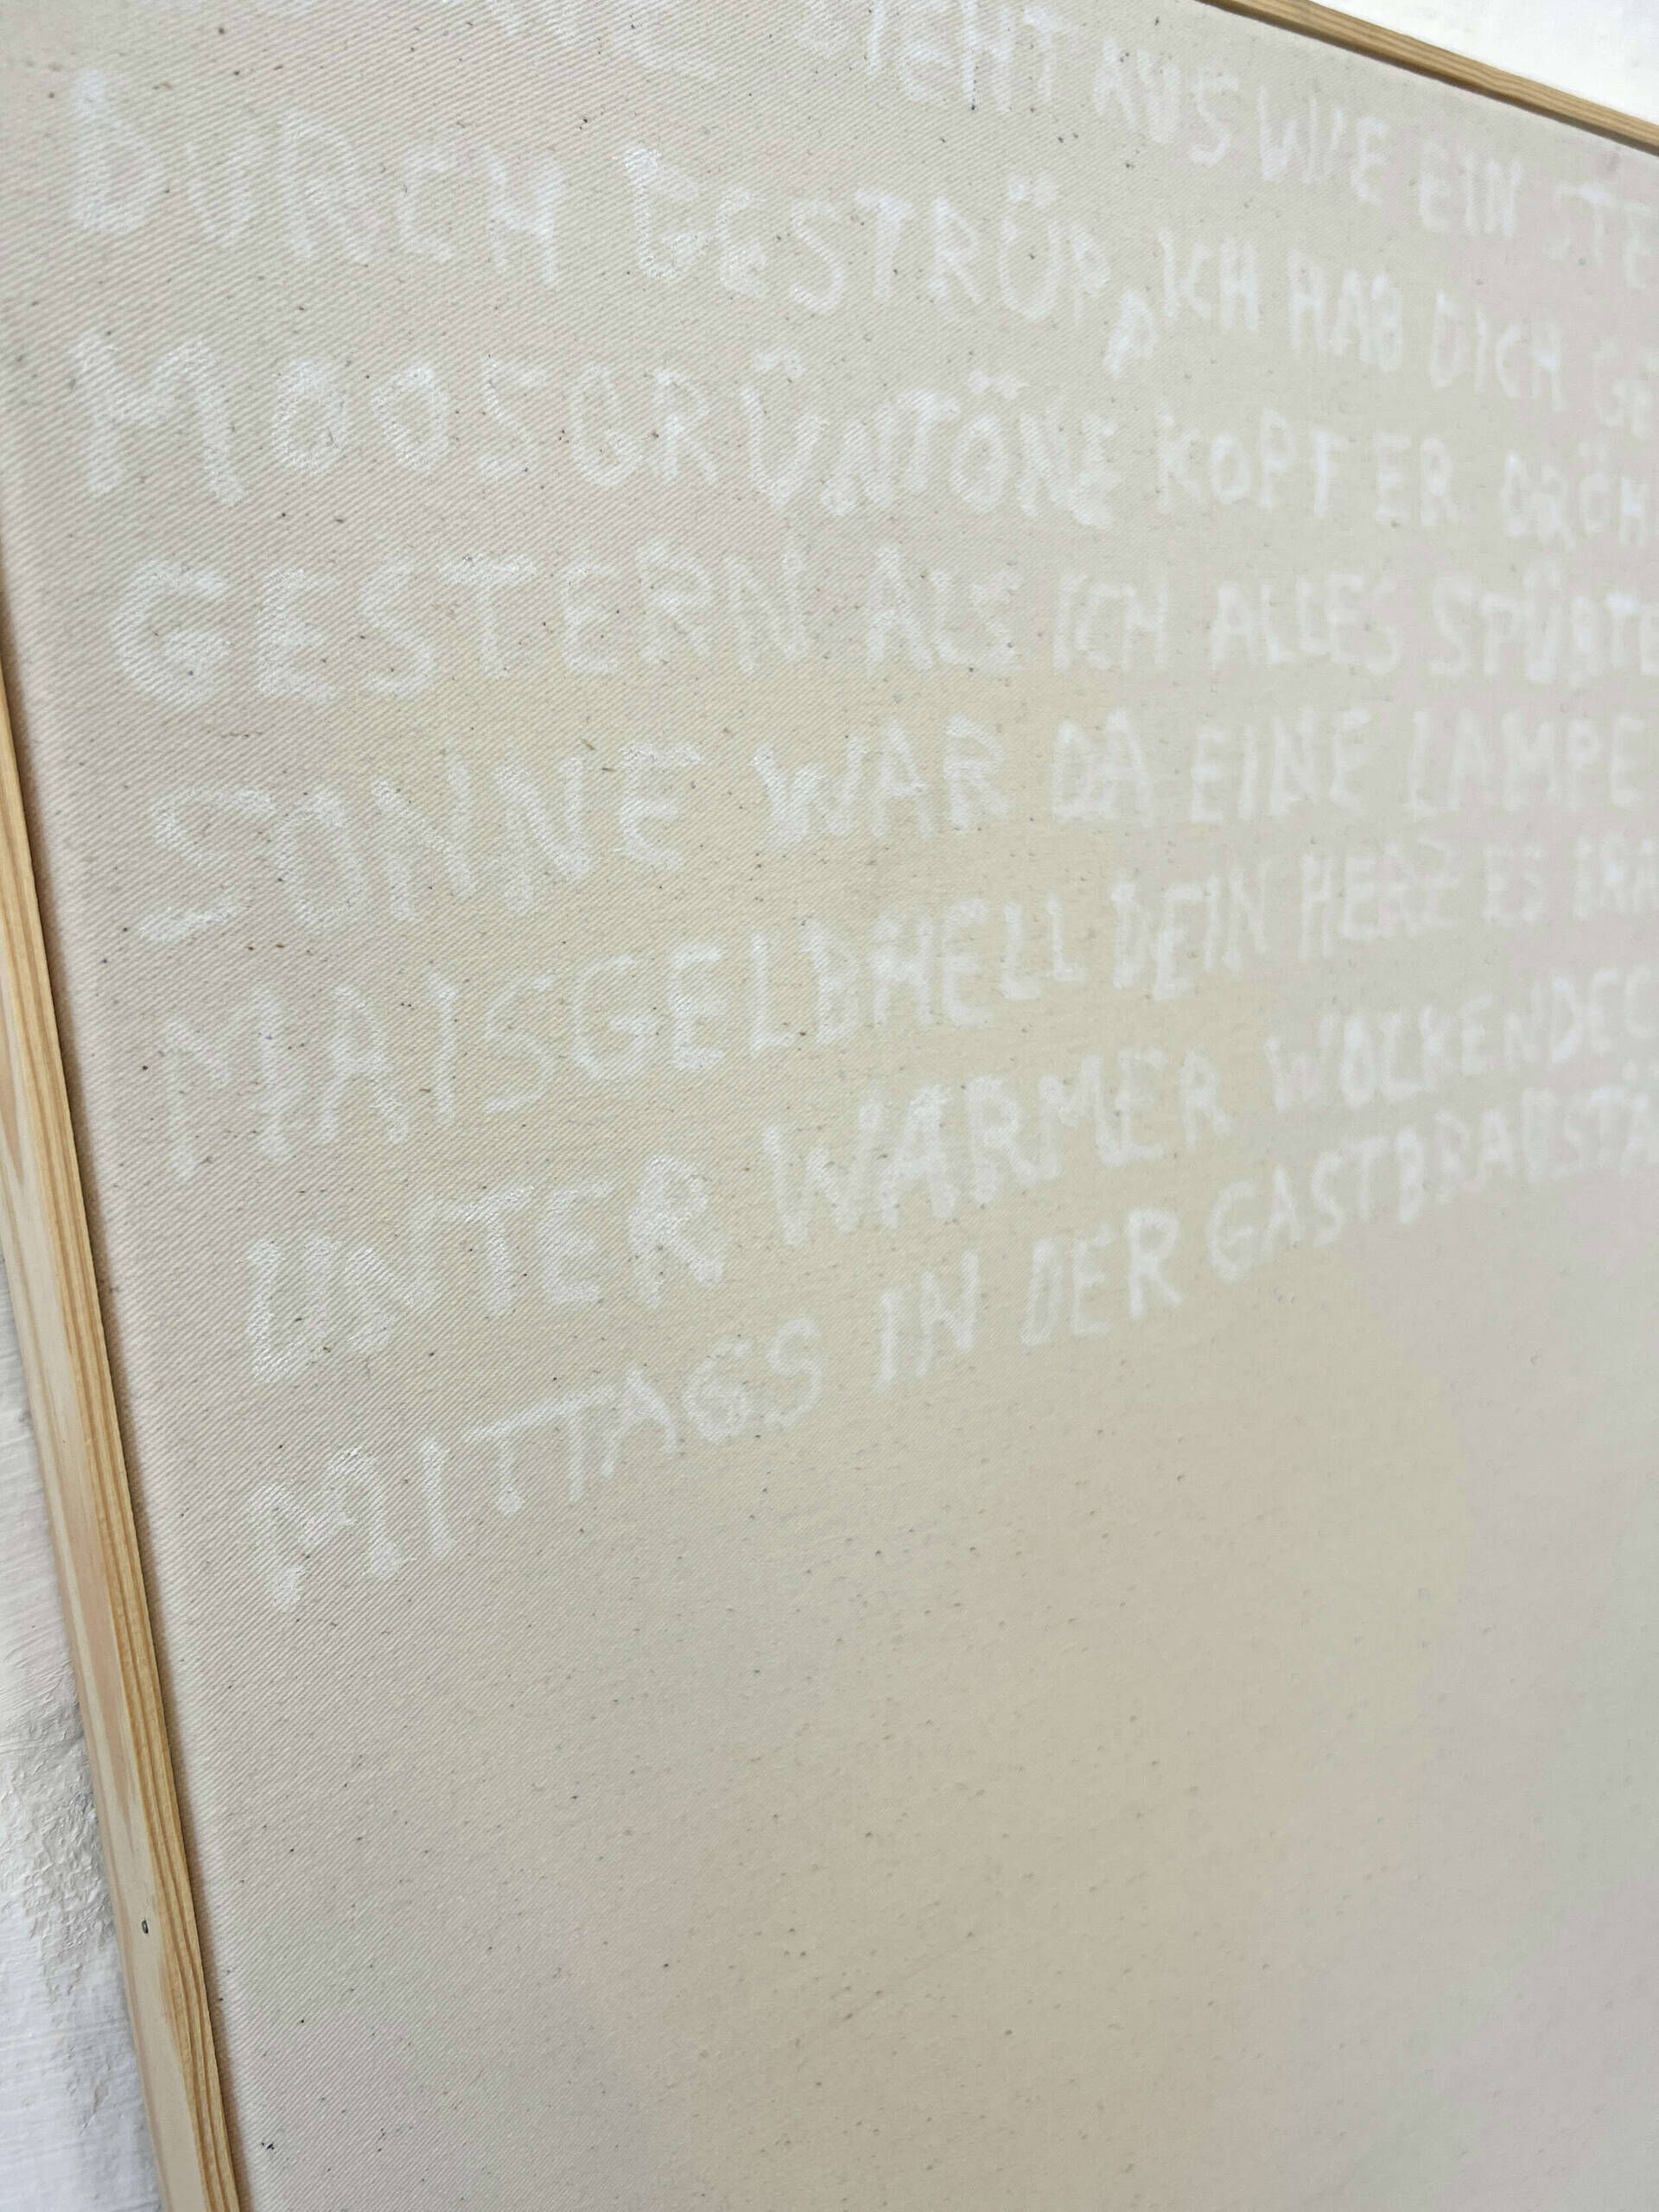 SIEHT AUS WIE EIN STE
DURCH GESTRÜPP ICH HAB DICH GE
MOOSGRÜNTÖNE KOPF ER DRÖH
GESTERN ALS ICH ALLES SPÜRTE
SONNE WAR DA EINE LAMPE
MAISGELBHELL DEIN HERZ ES
UNTER WARMER WOLKENDEC
MITTAGS IN DER GASTBRAUSTÄ